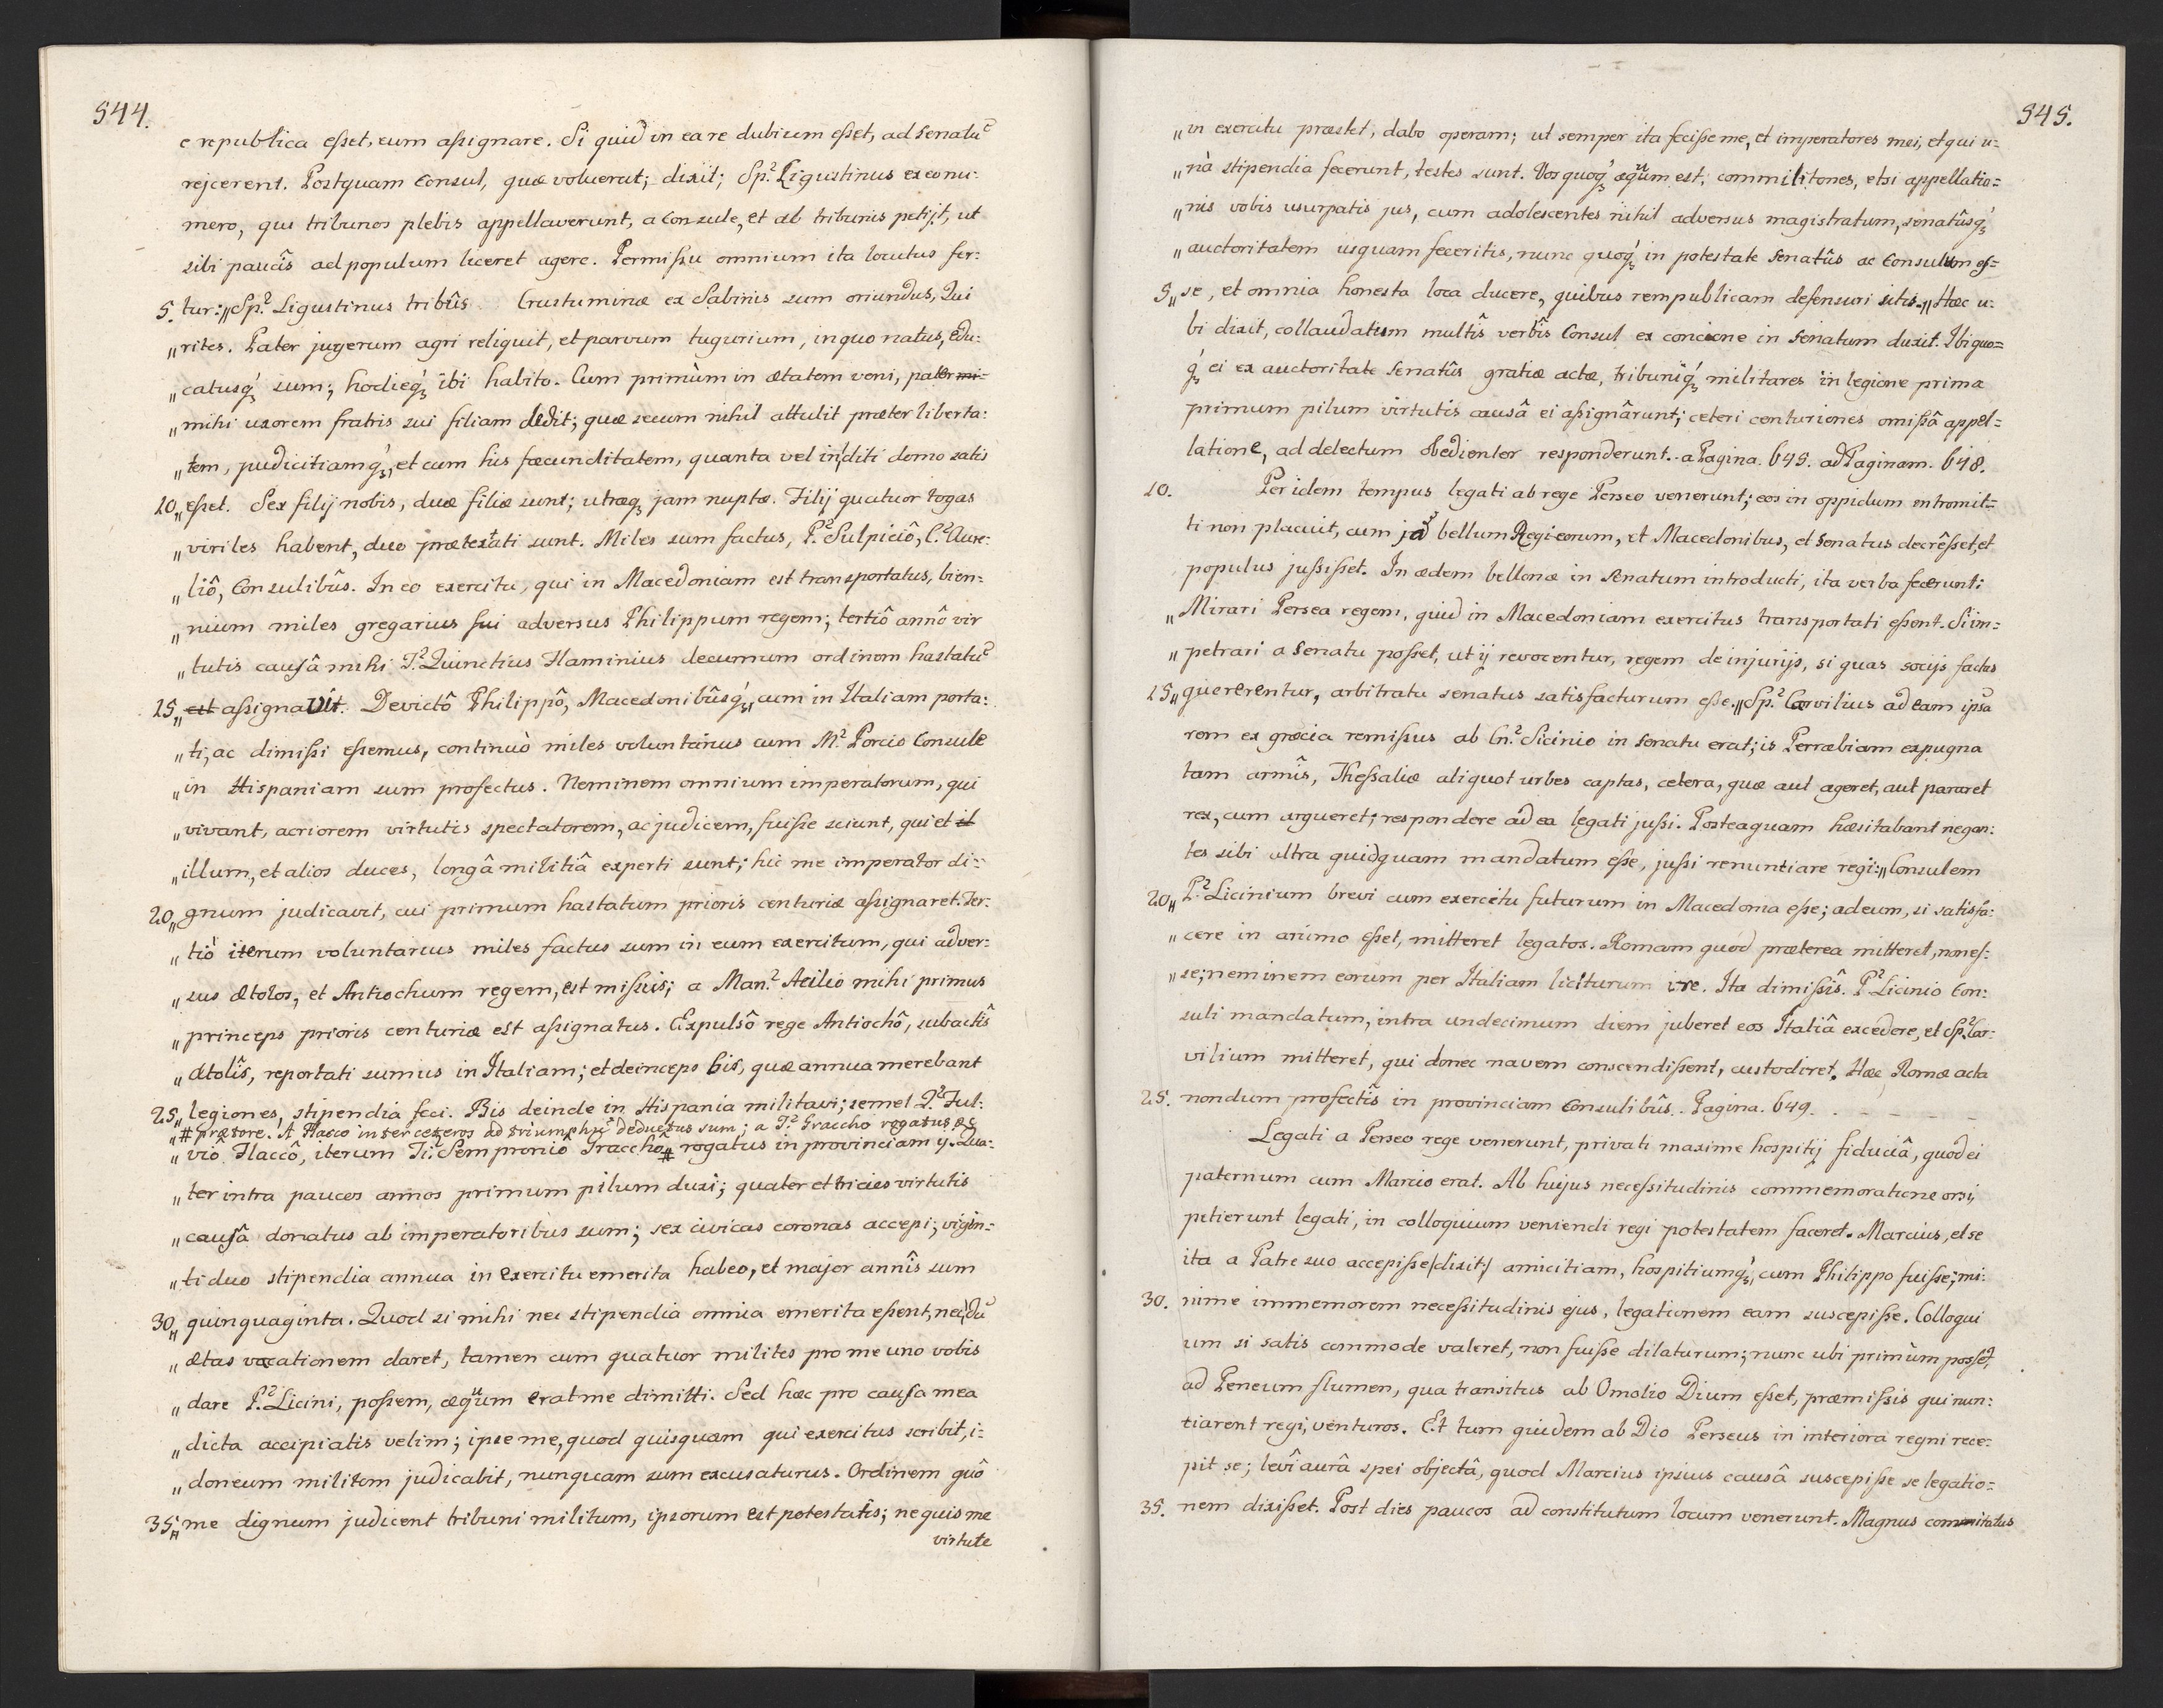 544.
e republica eſset, eum aſsignare. Si quid in ea re dubium eſset, ad Senatũ
rejcerent. Postquam Consul, quæ voluerat; dixit; Sp.² Ligustinus ex eo nu:
mero, qui tribunos plebis appellaverunt, a Consule, et ab tribunis petijt, ut
sibi paucîs ad populum liceret agere. Permiſsu omnium ita locutus fer:
5. tur: „Sp.² Ligustinus tribûs Crustuminæ ex Sabinis sum oriundus, Qui
„rites. Pater jugerum agri reliquit, et parvum tugurium, in quo natus, edu:
„catusq́ꝫ sum; hodieq́ꝫ ibi habito. Cum primùm in ætatem veni, pater mi-
„mihi uxorem fratris sui filiam dedit; quæ secum nihil attulit præter liberta:
„tem, pudicitiamq́ꝫ, et cum his fœcunditatem, quanta vel in diti domo satis
10„eſset. Sex filij nobis, duæ filiæ sunt; utræqꝫ jam nuptæ. Filij quatuor togas
„viriles habent, duo prætextati sunt. Miles sum factus, P.² Sulpiciô, C.² Aure:
„liô, Consulibûs. In eo exercitu, qui in Macedoniam est transportatus, bien=
„nium miles gregarius fui adversus Philippum regem; tertiô annô vir
„tutis cauſâ mihi T.² Quinctius Flaminius decumum ordinem hastatũ
15„est aſsignavit. Devictô Philippô, Macedonibûsq́ꝫ, cum in Italiam porta:
„ti, ac dimiſsi eſsemus, continuò miles voluntarius cum M.² Porcio Consule
„in Hispaniam sum profectus. Neminem omnium imperatorum, qui
„vivant, acriorem virtutis spectatorem, ac judicem, fuiſse sciunt, qui et il
„illum, et alios duces, longâ militiâ experti sunt; hic me imperator di=
20„gnum judicavit, cui primum hastatum prioris centuriæ aſsignaret. Ter:
„tiò iterum voluntarius miles factus sum in eum exercitum, qui adver:
„sus Ætolos, et Antiochum regem, est miſsus; a Man.² Acilio mihi primus
„princeps prioris centuriæ est aſsignatus. Expulsô rege Antiochô, subactîs
„Ætolîs, reportati sumus in Italiam; et deinceps bis, quæ annua merebant
25„legiones, stipendia feci. Bis deinde in Hispania militavi; semel Q.² Ful:
„# prætore. A Flacco inter ceteros ad triumphũ deductus sum; a T.² Graccho rogatus &c
„viô Flaccô, iterum Ti.² Semproniô Gracchô # rogatus in provinciam ij. Qua:
„ter intra paucos annos primum pilum duxi; quater et tricies virtutis
„cauſâ donatus ab imperatoribus sum; sex civicas coronas accepi; vigin=
„ti duo stipendia annua in exercitu emerita habeo, et major annîs sum
30„quinquaginta. Quod si mihi nec stipendia omnia emerita eſsent, necdũ
„ætas vacationem daret, tamen cum quatuor milites pro me uno vobis
„dare P.² Licini, poſsem, æquum erat me dimitti. Sed hæc pro cauſa mea
„dicta accipiatis velim; ipse me, quod quisquam qui exercitus scribit, i=
„doneum militem judicabit, nunquam sum excusaturus. Ordinem quô
35„me dignum judicent tribuni militum, ipsorum est potestatis; ne quis me
virtute
545.
„in exercitu præstet, dabo operam; ut semper ita feciſse me, et imperatores mei, et qui u=
„nà stipendia fecerunt, testes sunt. Vos quoq́ꝫ æquum est, commilitones, etsi appellatio=
„nis vobis usurpatis jus, cum adolescentes nihil adversus magistratum, senatûsq́ꝫ
„auctoritatem usquam feceritis, nunc quoq́ꝫ in potestate Senatûs ac Consulum eſ=
5„se, et omnia honesta loca ducere, quibus rempublicam defensuri sitis.„ Hæc u:
bi dixit, collaudatum multîs verbîs Consul ex concione in Senatum duxit. Ibi quo=
q́ꝫ ei ex auctoritate Senatûs gratiæ actæ, tribuniq́ꝫ militares in legione prima
primum pilum virtutis causâ ei aſsignârunt; ceteri centuriones omiſsâ appel=
latione, ad delectum obedienter responderunt. a Pagina. 645. ad Paginam. 648.
10. Per idem tempus legati ab rege Perseo venerunt; eos in oppidum intromit=
ti non placuit, cum jã bellum Regi eorum, et Macedonibus, et Senatus decrêſset, et
populus juſsiſset. In ædem bellonæ in Senatum introducti, ita verba fecerunt:
„Mirari Persea regem, quid in Macedoniam exercitus transportati eſsent. Si im=
„petrari a Senatu poſset, ut ij revocentur, regem de injurijs, si quas socijs factas
15„quererentur, arbitratu senatus satisfacturum eſse.„ Sp.² Carvilius ad eam ipsã
rem ex græcia remiſsus ab Cn.² Sicinio in senatu erat; is Perræbiam expugna
tam armîs, Theſsaliæ aliquot urbes captas, cetera, quæ aut ageret, aut pararet
rex, cum argueret; respondere ad ea legati juſsi. Posteaquam hæsitabant negan:
tes sibi ultra quidquam mandatum eſse, juſsi renuntiare regi: „Consulem
20„P.² Licinium brevi cum exercitu futurum in Macedonia eſse; ad eum, si satisfa:
„cere in animo eſset, mitteret legatos. Romam quòd præterea mitteret, non eſ:
„se; neminem eorum per Italiam liciturum ire. Ita dimiſsîs. P.² Licinio Con:
suli mandatum, intra undecimum diem juberet eos Italiâ excedere, et Sp.² Car:
vilium mitteret, qui donec navem conscendiſsent, custodiret. Hæc Romæ acta
25. nondum profectîs in provinciam Consulibûs. Pagina. 649. . - - - - -
Legati a Perseo rege venerunt, privati maxime hospitij fiduciâ, quod ei
paternum cum Marcio erat. Ab hujus neceſsitudinis commemoratione orsi,
petierunt legati, in colloquium veniendi regi potestatem faceret. Marcius, et se
ita a Patre suo accepiſse /dixit/ amicitiam, hospitiumq́ꝫ, cum Philippo fuiſse; mi:
30. nime immemorem neceſsitudinis ejus, legationem eam suscepiſse. Colloqui
um si satis commode valeret, non fuiſse dilaturum; nunc ubi primùm poſset,
ad Peneum flumen, qua transitus ab Omolio Dium eſset, præmiſsis qui nun:
tiarent regi, venturos. Et tum quidem ab Dio Perseus in interiora regni rece:
pit se; levî aurâ spei objectâ, quod Marcius ipsius causâ suscepiſse se legatio=
35. nem dixiſset. Post dies paucos ad constitutum locum venerunt. Magnus comitatus